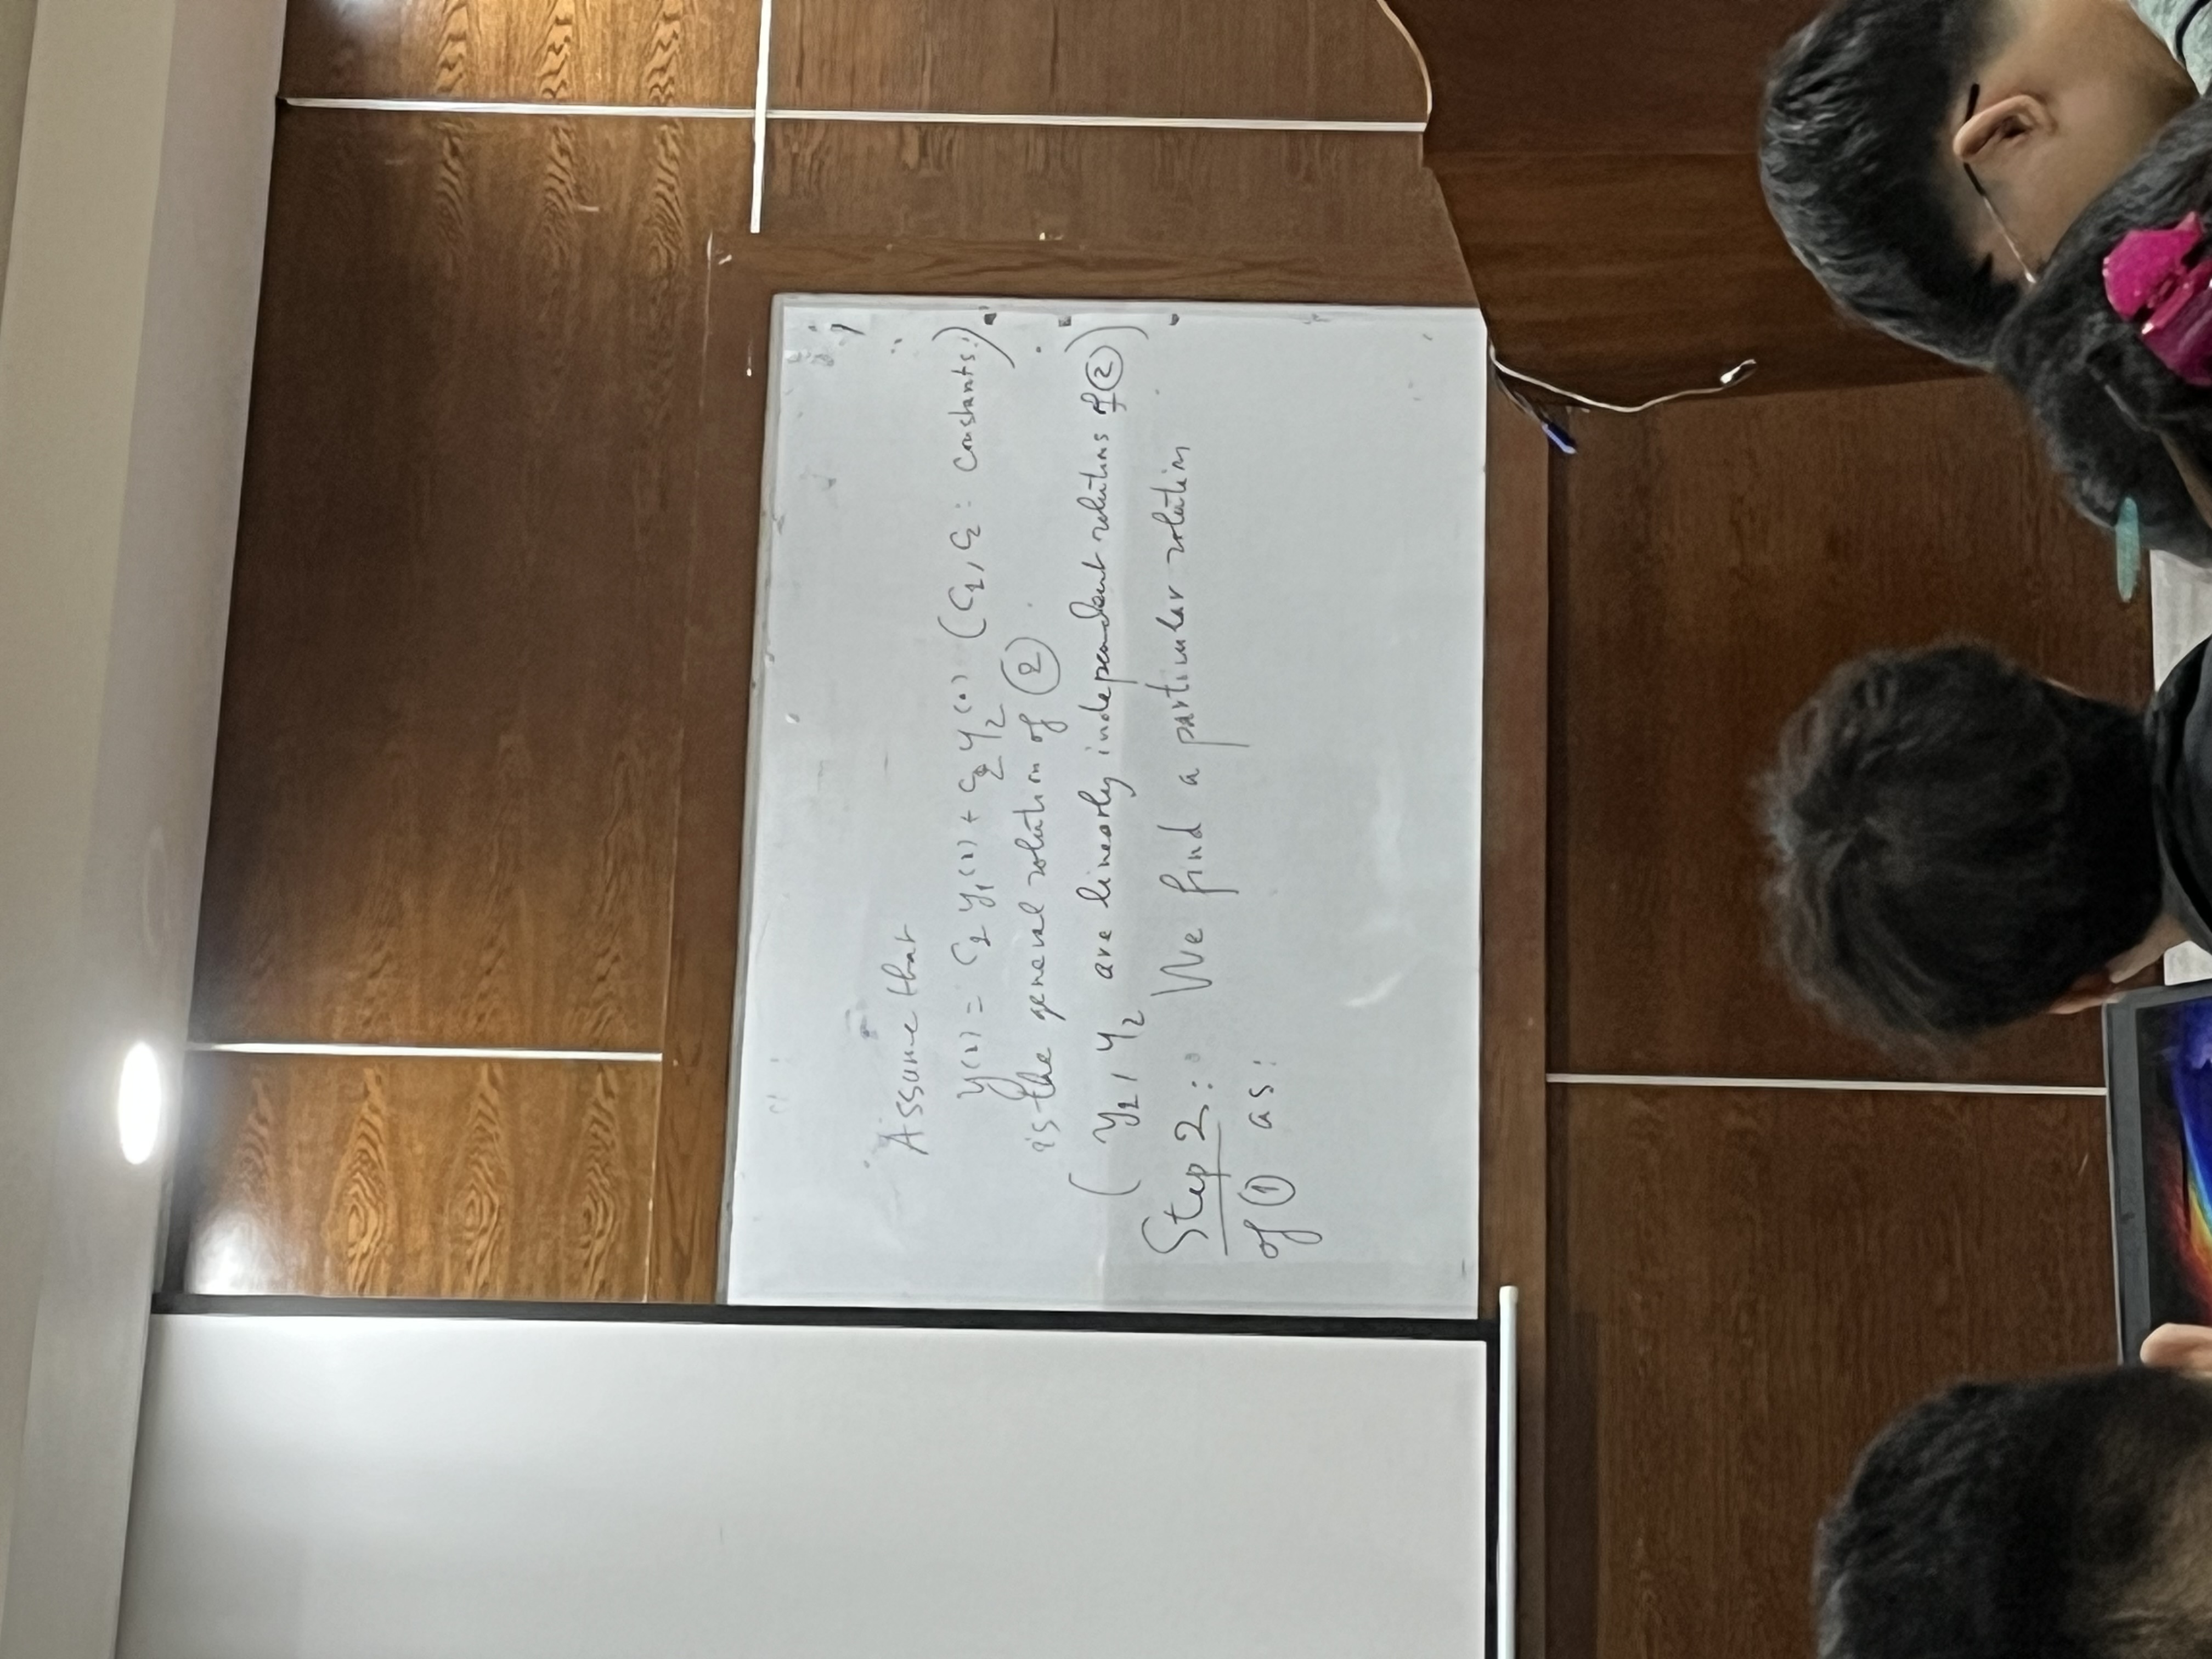 Assume that
y(x) = C₁ y₁(x) + C₂ y₂(x) (C₁, C₂ : constants)
is the general solution of ②
( y₁, y₂ are linearly independent solutions of ② )
Step 2 : We find a particular solution
of ① as :